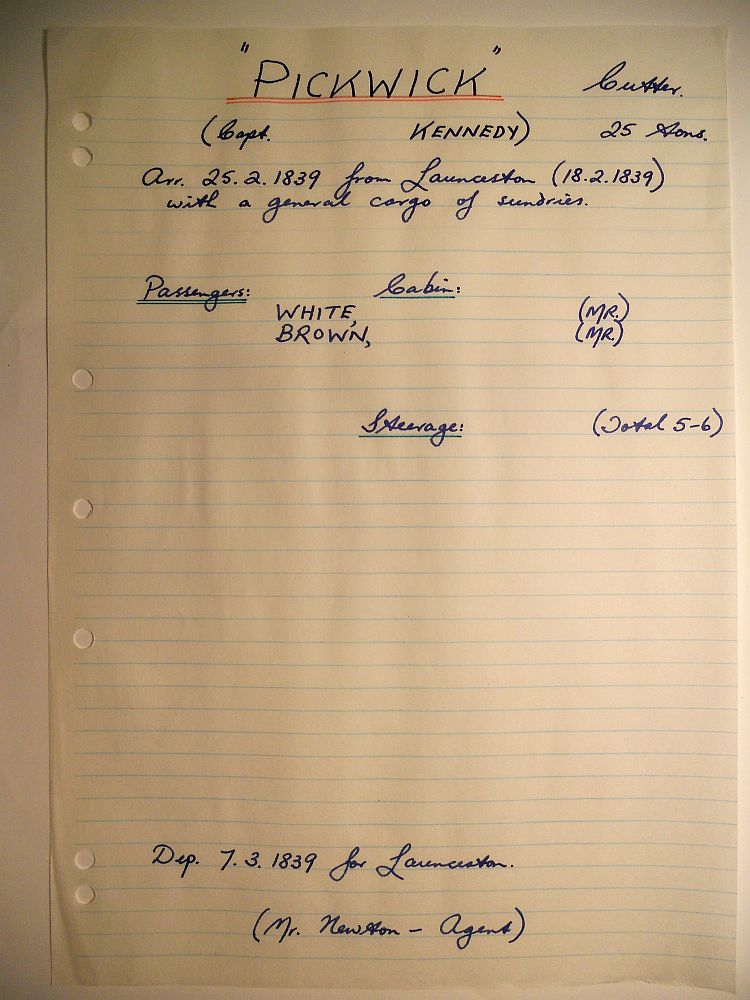 "PICKWICK" Cutter.
(Capt. KENNEDY) 25 tons.
Arr. 25.2.1839 from Launceston (18.2.1839)
with a general cargo of sundries.
Passengers: Cabin:
WHITE, (MR.)
BROWN, (MR.)
Steerage: (Total 5-6)
Dep. 7.3.1839 for Launceston.
(Mr. Newton - Agent)